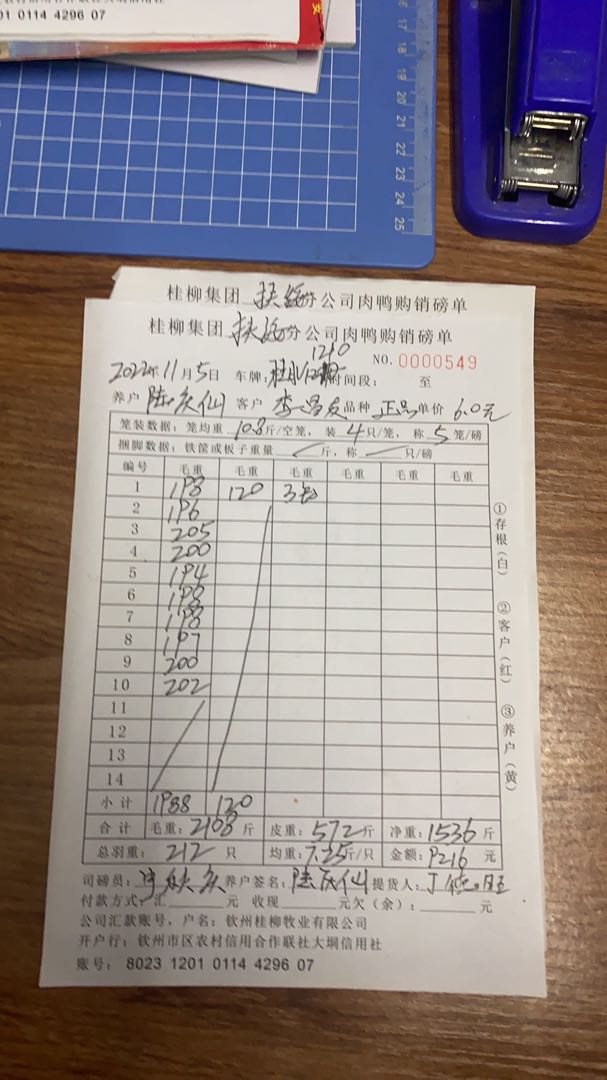 01 0114 4296 07
16
17
18
19
20
21
22
23
24
25
桂柳集团 扶绥分公司肉鸭购销磅单
桂柳集团 扶绥分公司肉鸭购销磅单
NO.0000549
1210
2022年11月5日 车牌: 时间段: 至
养户 陆庆仙 客户 李昌友 品种 正品 单价 6.0元
笼装数据: 笼均重 10.8 斤/空笼, 装 4 只/笼, 称 5 笼/磅
捆脚数据: 铁筐或板子重量 斤, 称 只/磅
编号 毛重 毛重 毛重 毛重 毛重 毛重
1 198 120 3包
2 196
3 205
4 200
5 194
6 198
7 198
8 197
9 200
10 202
11
12
13
14
小计 1988 120
合计 毛重: 2108 斤 皮重: 572 斤 净重: 1536 斤
总羽重: 212 只 均重: 7.25 斤/只 金额: 9216 元
司磅员: 养户签名: 陆庆仙 提货人: 丁德旺
付款方式: 汇 元 收现 元欠(余): 元
公司汇款账号, 户名: 钦州桂柳牧业有限公司
开户行: 钦州市区农村信用合作联社大垌信用社
账号: 8023 1201 0114 4296 07
①存根(白)
②客户(红)
③养户(黄)